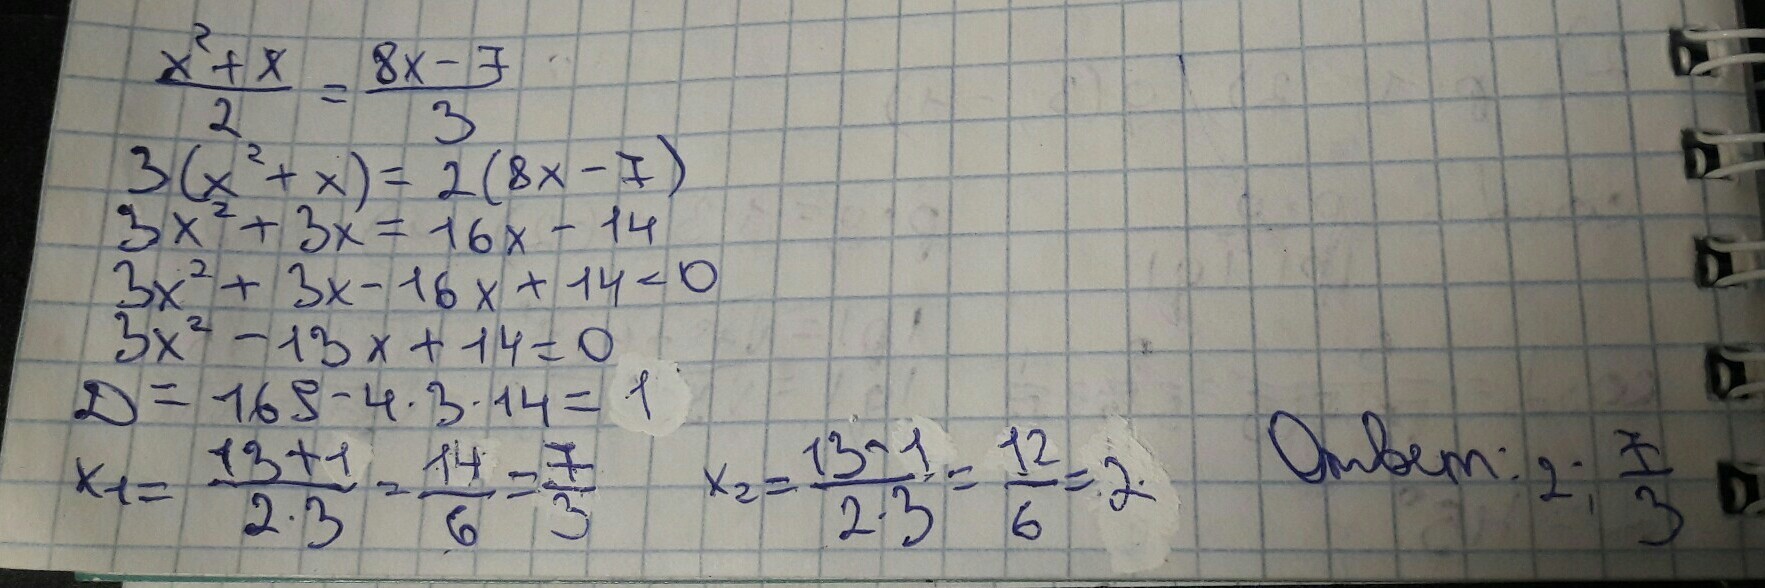 x²+x / 2 = 8x-7 / 3
3(x²+x) = 2(8x-7)
3x²+3x = 16x-14
3x²+3x-16x+14=0
3x²-13x+14=0
D = 169-4·3·14 = 1
x₁ = 13+1 / 2·3 = 14 / 6 = 7 / 3 x₂ = 13-1 / 2·3 = 12 / 6 = 2 Ответ: 2; 7 / 3